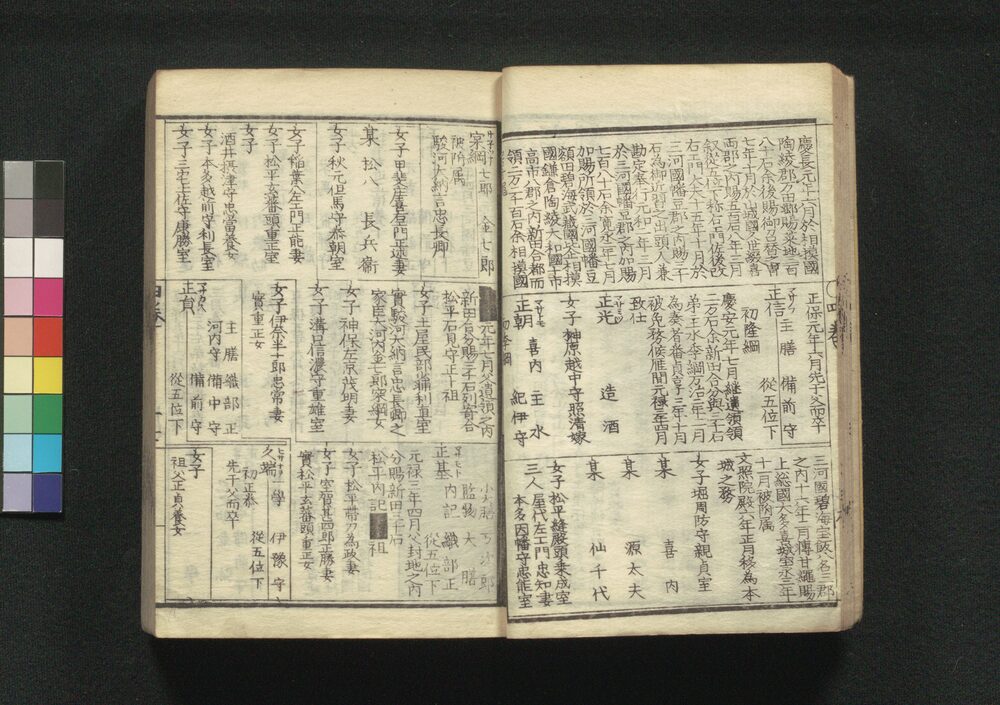 慶長元年六月於相摸國
陶綾郡万田郷賜采地二百
八十石余後賜御書院番
七年十月於山城國久世葛喜
両郡之内賜五百石八年三月
叙從五位下称右エ門佐後改
右エ門太夫十五年十月於
三河國幡豆郡之内賜二千
石為御近習之出頭人兼
勘定奉行元和二年三月
於三河國幡豆郡之内加賜
七百八十石余寛永二年七月
加賜所領於三河國幡豆
額田碧海武藏國足立相摸
國鎌倉陶綾大和國十市
高市八郡之内新田合都而
領二万二千百石余相摸國
正保元年六月先于父而卒
主膳 備前守
正信 從五位下
初隆綱
慶安元年七月継遺領領
二万石余新田合分與三千石
弟主水季綱万治二年二月
為奏者番貞享三年十月
被免務候雁間元禄三年四月
致仕
正光 造酒
女子 榊原越中守照清嫁
正朝 喜内 主水 紀伊守
三河國碧海宝飯八名三郡
之内十六年二月傳甘縄賜
上総國大多喜城寛永三年
十一月被附属
文照院殿六年正月移為本
城之務
女子 堀周防守親貞室
某 喜内
某 源太夫
某 仙千代
女子 松平縫殿頭乗成室
三人 屋代左エ門忠知妻
本多因幡守忠能室
家綱 七郎 金七郎
陂附属
駿河大納言忠長卿
女子 甲斐庄喜右エ門正述妻
某 松八 長兵衛
女子 秋元但馬守泰朝室
女子 稲葉八左エ門正能妻
女子 松平玄蕃頭重正室
女子
酒井摂津守忠當養女
女子 本多越前守利長室
女子 三宅土佐守康勝室
元年七月父遺領之内
新田合分賜三千石列寄合
松平石見守正十祖
女子 土屋民部少輔利重室
實駿河大納言忠長卿之
家臣大河内金七郎家綱女
女子 神保左京茂明妻
女子 溝口信濃守重雄室
女子 伊奈半十郎忠常妻
實重正女
正貞 主膳 織部正
河内守 備中守
備前守
從五位下
小膳 乃次郎
監物 大膳
正基 内記 織部正
從五位下
元禄三年四月父封地之内
分賜新田三千石
松平内記 祖
女子 松平帯刀為政妻
女子 室賀甚四郎正勝妻
實松平玄蕃頭重正女
久端 一學 伊豫守
初正恭 從五位下
先于父而卒
女子
祖父正貞養女